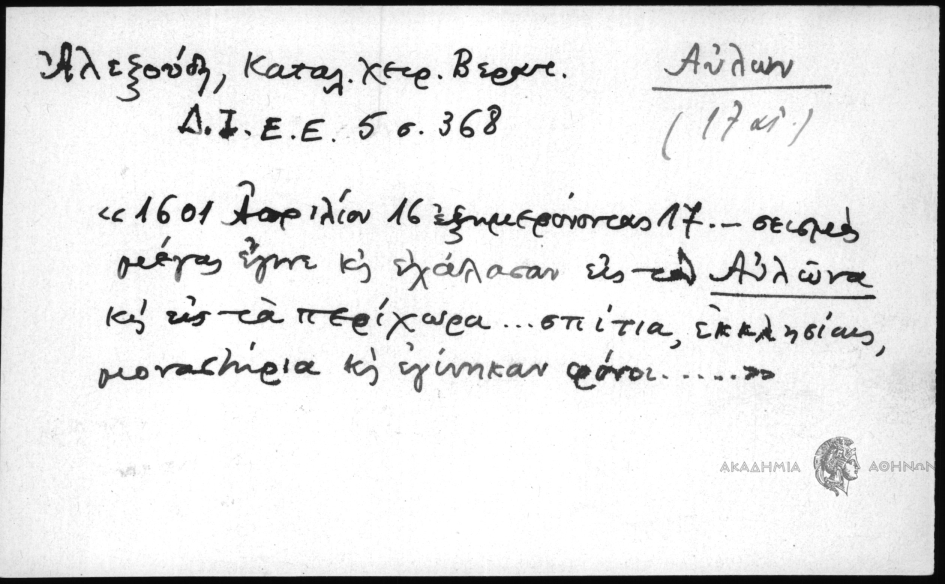 Ἀλεξούδη, Καταλ. χειρ. Βερατ.
Αὐλων
Δ.Ι.Ε.Ε. 5 σ. 368
(17 αἰ.)
«1601 Ἀπριλίου 16 ἐξημερώνοντας 17 .– σεισμὸς
μέγας ἔγινε κὴ ἐχάλασαν εἰς τὸν Αὐλῶνα
κὴ εἰς τὰ περίχωρα ... σπίτια, ἐκκλησίαις,
μοναστήρια κὴ ἐγίνηκαν φόνοι ......»
ΑΚΑΔΗΜΙΑ ΑΘΗΝΩΝ